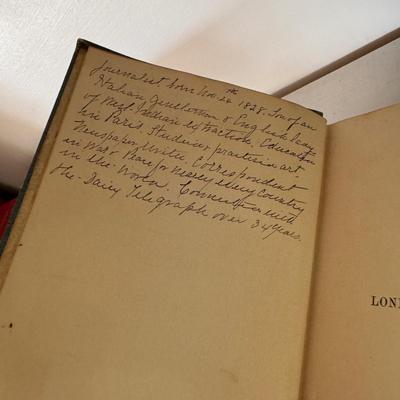 Journalist born Nov. 24th 1828. Son of an
Italian gentleman & English lady
of West Indian extraction. Education
in Paris. Student & practises in art.
Newspaper Writer Correspondent
in War & Peace for nearly every Country
in the World. Connection with
the Daily Telegraph over 34 years.
LON